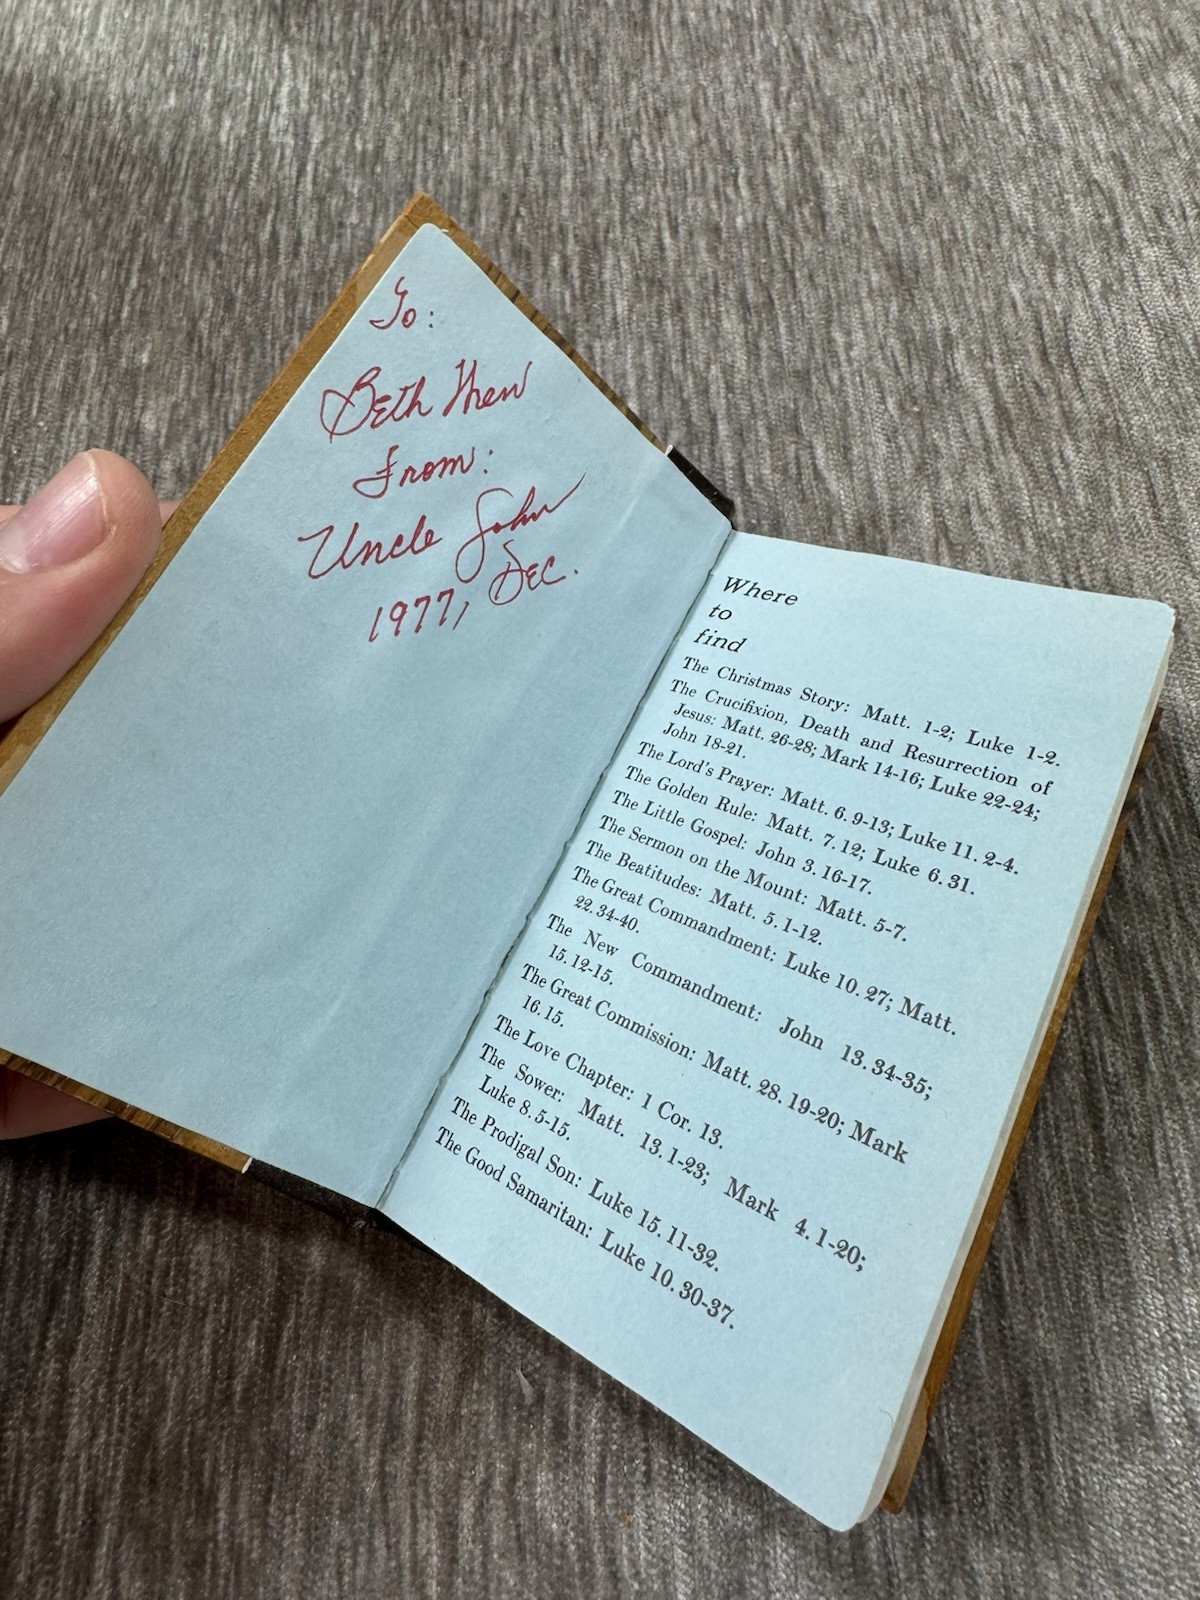 To:
Beth
From:
Uncle John
1977, Dec.
Where
to
find
The Christmas Story: Matt. 1-2; Luke 1-2.
The Crucifixion, Death and Resurrection of
Jesus: Matt. 26-28; Mark 14-16; Luke 22-24;
John 18-21.
The Lord's Prayer: Matt. 6. 9-13; Luke 11. 2-4.
The Golden Rule: Matt. 7. 12; Luke 6. 31.
The Little Gospel: John 3. 16-17.
The Sermon on the Mount: Matt. 5-7.
The Beatitudes: Matt. 5. 1-12.
The Great Commandment: Luke 10. 27; Matt.
22. 34-40.
The New Commandment: John 13. 34-35;
15. 12-15.
The Great Commission: Matt. 28. 19-20; Mark
16. 15.
The Love Chapter: 1 Cor. 13.
The Sower: Matt. 13. 1-23; Mark 4. 1-20;
Luke 8. 5-15.
The Prodigal Son: Luke 15. 11-32.
The Good Samaritan: Luke 10. 30-37.